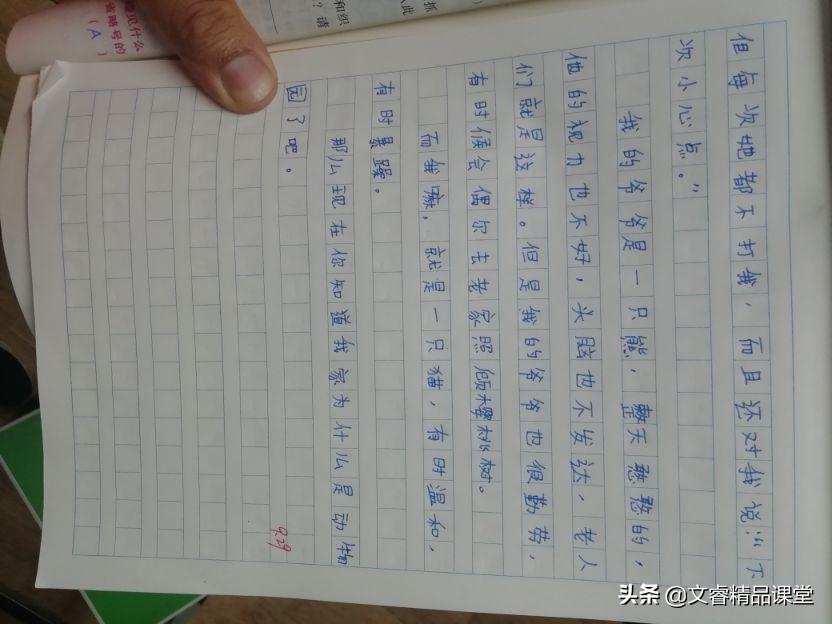 但每次她都不打我，而且还对我说：“下
次小心点。”
我的爷爷是一只熊，整天憨憨的，
他的视力也不好，头脑也不发达，老人
们就是这样。但是我的爷爷也很勤劳，
有时候会偶尔去老家照顾樱桃树。
而我嘛，就是一只猫，有时温和，
有时暴躁。
那么现在你知道我家为什么是动物
园了吧。
9.29
和织
？请
抓
从此
见什么
省略号的
（A）
头条 @文睿精品课堂